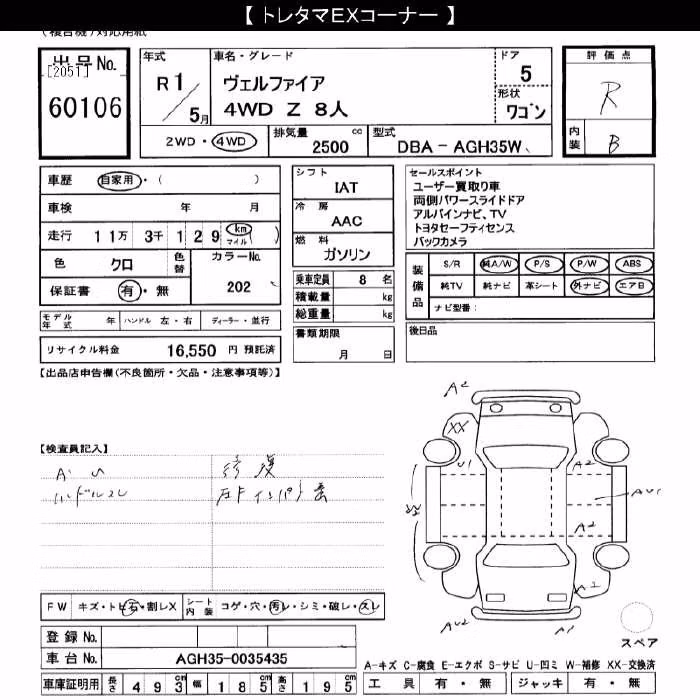 【 トレタマEXコーナー 】
(複合機)対応用紙
出品No.
[2051]
60106
年式
R 1 / 5月
車名・グレード
ヴェルファイア
4WD Z 8人
ドア
5
形状
ワゴン
2WD・4WD
排気量 2500 cc
型式 DBA - AGH35W
評価点
R
内装
B
車歴 自家用・( )
車検 年 月
走行 11万 3千 129 km マイル )
色 クロ
色替
カラーNo.
202
保証書 有・無
モデル年式 年 ハンドル 左・右 ディーラー・並行
リサイクル料金 16,550 円 預託済
シフト
IAT
冷房
AAC
燃料
ガソリン
乗車定員 8 名
積載量 kg
総重量 kg
書類期限
月 日
セールスポイント
ユーザー買取り車
両側パワースライドドア
アルパインナビ、TV
トヨタセーフティセンス
バックカメラ
装備品
S/R 純A/W P/S P/W ABS
純TV 純ナビ 革シート 外ナビ エアB
ナビ型番:
後日品
【出品店申告欄(不良箇所・欠品・注意事項等)】
【検査員記入】
ハンドルスレ
修復
A2
XX
U1
A2
AU1
A2
A2
AU2
A1
スペア
FW キズ・トビ石・割レX
シート内装 コゲ・穴・汚レ・シミ・破レ・スレ
登録No.
車台No. AGH35-0035435
車庫証明用 長さ 493 幅 185 高さ 195
A-キズ C-腐食 E-エクボ S-サビ U-凹ミ W-補修 XX-交換済
工具 有・無 ジャッキ 有・無